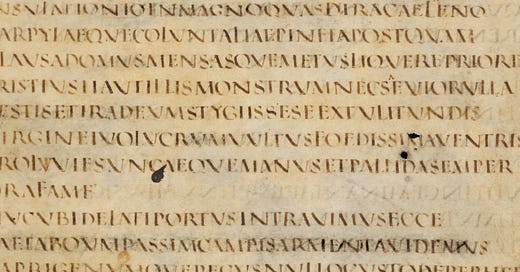 NSVLAEIONIOINMAGNOQVASDIRACAELENO
ARPYIAEQVECOLVNTALIAEPINEIAPOSTQVAM
LAVSADOMVSMENSASQVEMETVSLIQVEREPRIORE
RISTIVSHAVTILLISMONSTRVMNECSEVIORVLLA
ESTISETIRADEVMSTYGIISSESEEXTVLITVNDIS
IRGINEIVOLVCRVMVVLTVSFOEDISSIMAVENTRIS
ROLVVIESVNCAEQVEMANVSETPALLIDASEMPER
ORAFAME
VCVBIDELATIPORTVSINTRAVIMVSECCE
AETABOVMPASSIMCAMPISARMENTAVIDEMVS
APRIGENVMQVEPECVSNVLLOCVSTODEPER